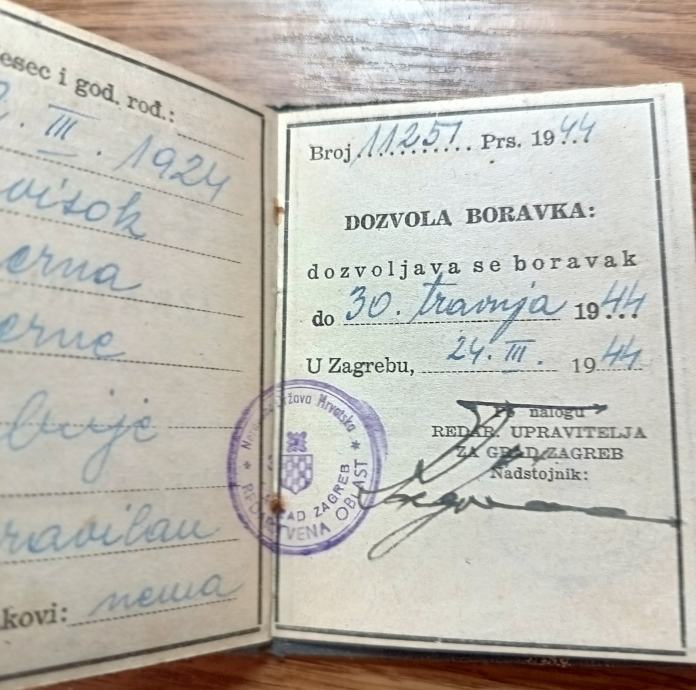 esec i god. rođ.:
2. III. 1924
visok
crna
crne
pravilan
kovi: nema
Broj 11251 Prs. 1944
DOZVOLA BORAVKA:
dozvoljava se boravak
do 30. travnja 1944
U Zagrebu, 24. III. 1944
Po nalogu
REDAR. UPRAVITELJA
ZA GRAD ZAGREB
Nadstojnik:
Nezavisna Država Hrvatska
REDARSTVENA OBLAST
GRAD ZAGREB